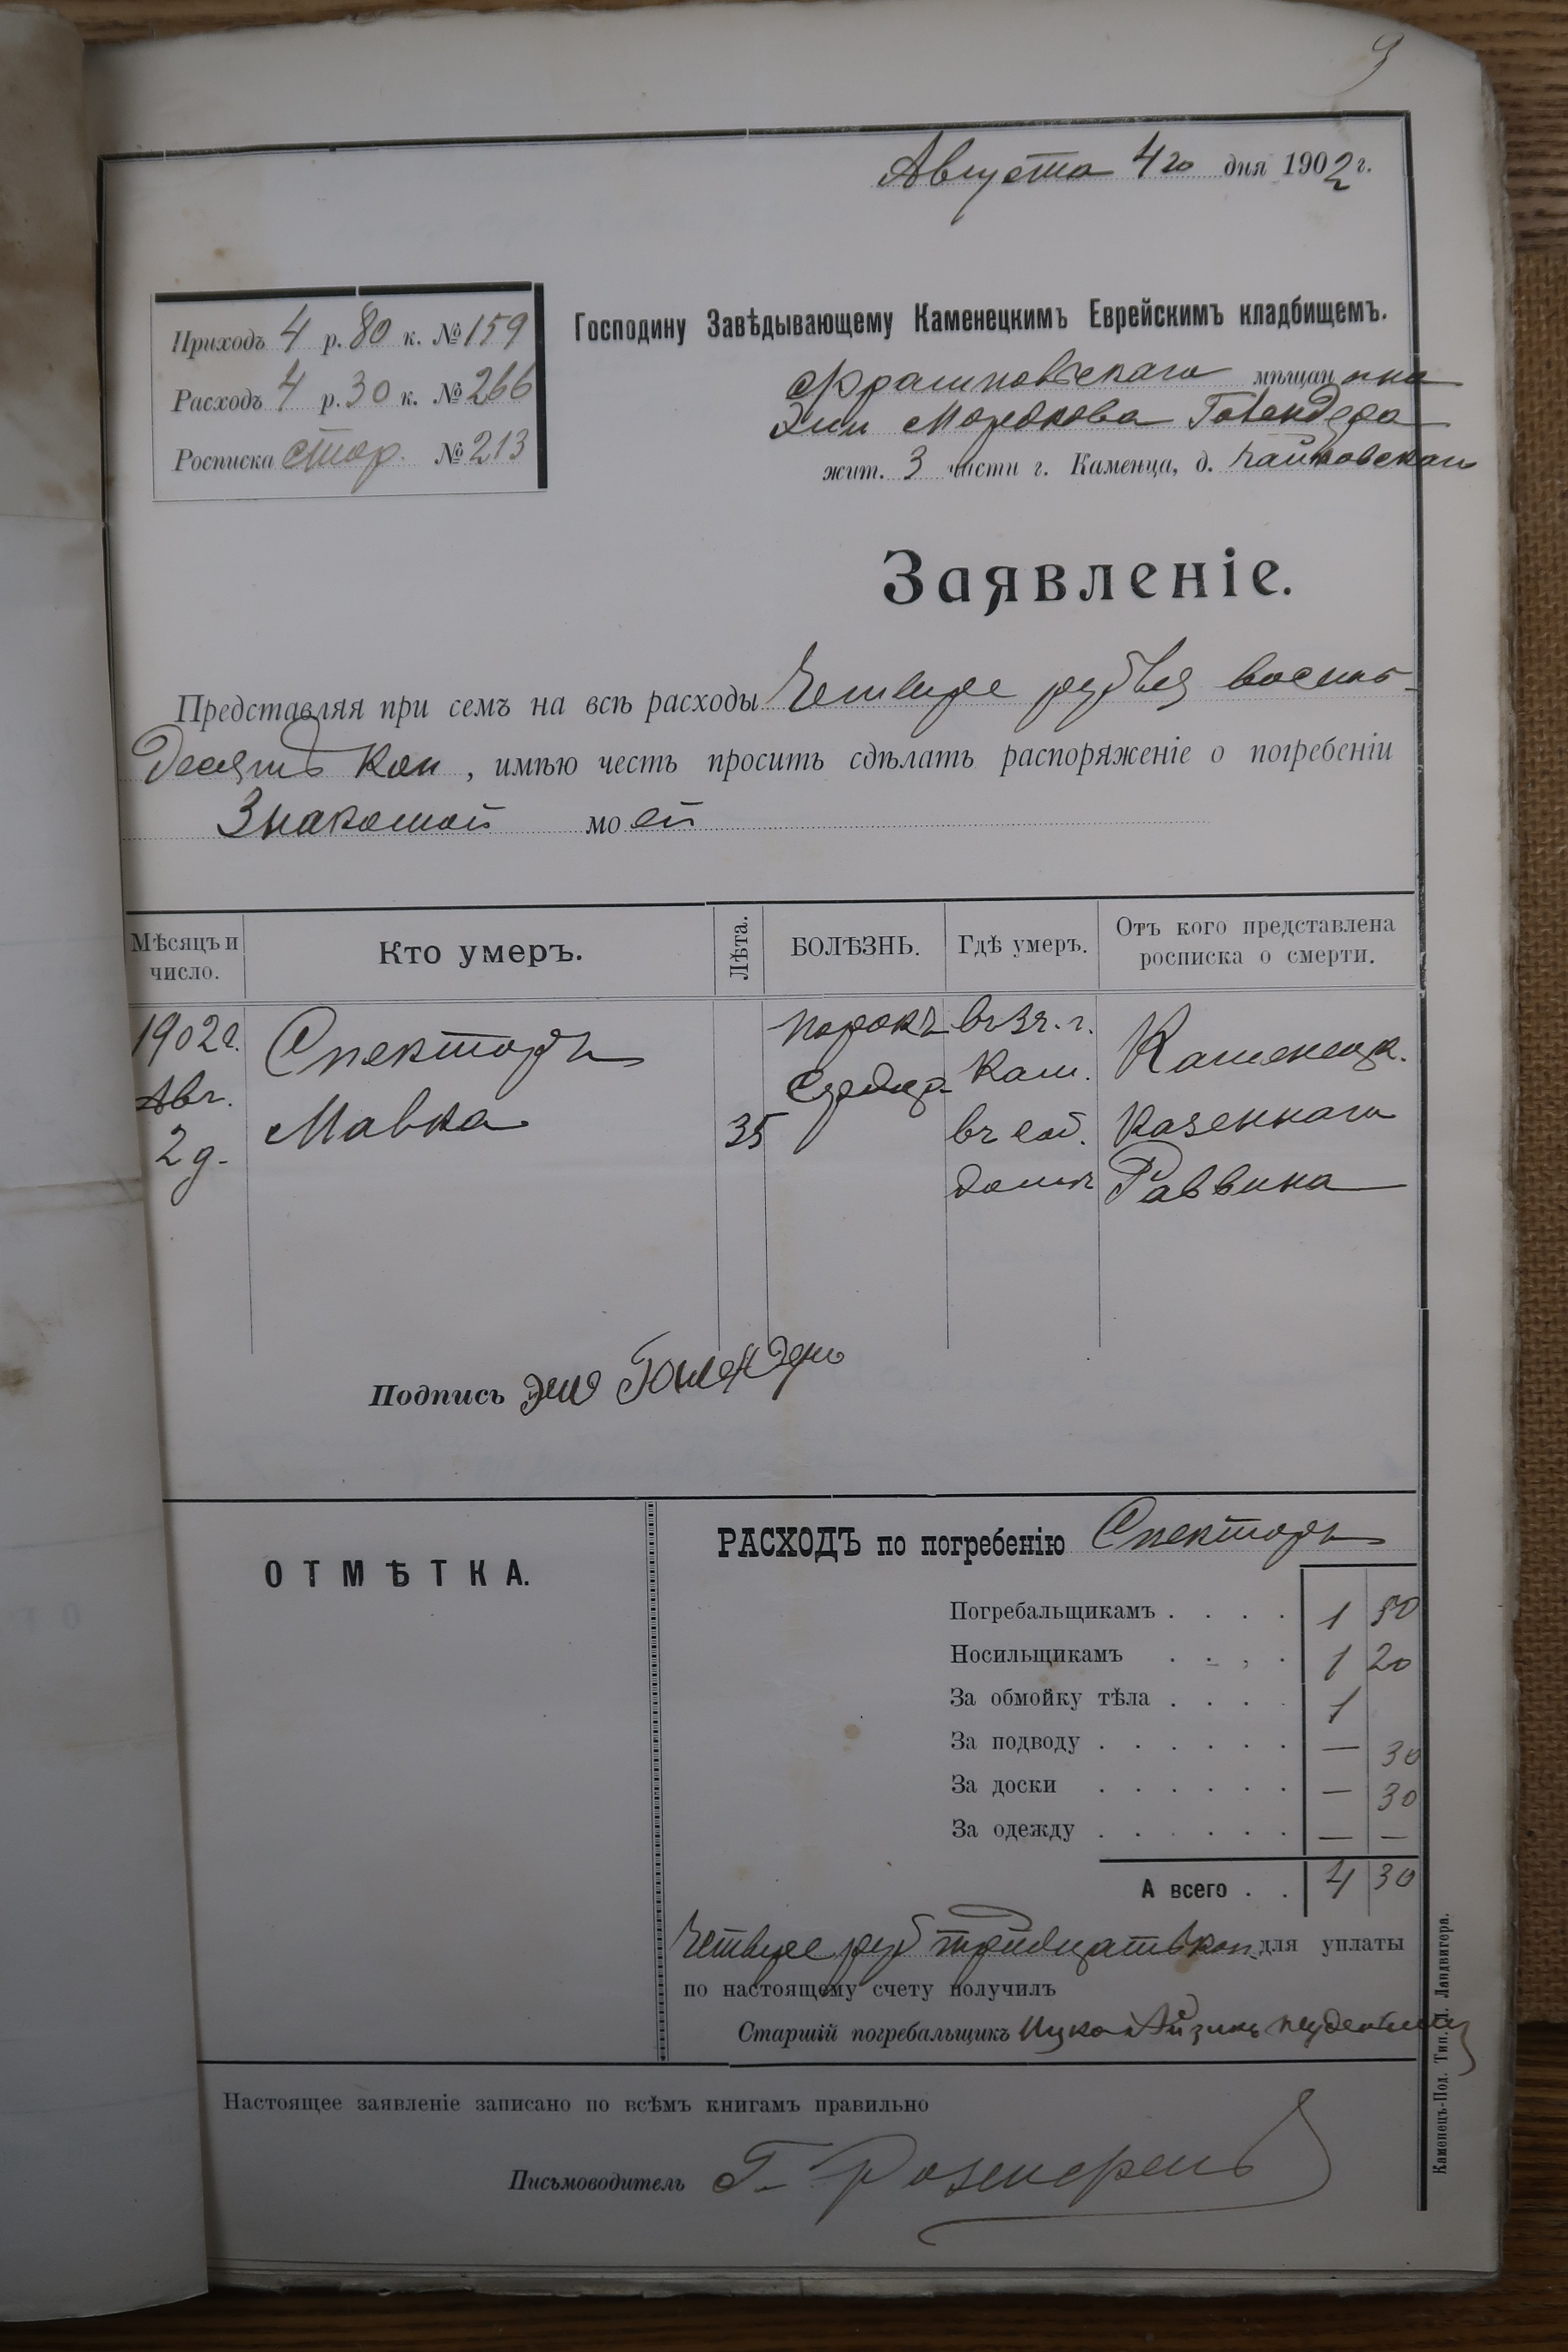 9
Августа 4го дня 1902 г.
Приходъ 4 р. 80 к. № 159
Расходъ 4 р. 30 к. № 266
Росписка стор. № 213
Господину Завѣдывающему Каменецкимъ Еврейскимъ кладбищемъ.
мѣщанина
Эли Мордкова Голендера
жит. 3 части г. Каменца, д.
Заявленіе.
Представляя при семъ на всѣ расходы Четыре рубля восемь-
десятъ коп, имѣю честь просить сдѣлать распоряженіе о погребеніи
Знакомой моей
Мѣсяцъ и число.
Кто умеръ.
Лѣта.
БОЛѢЗНЬ.
Гдѣ умеръ.
Отъ кого представлена росписка о смерти.
1902г.
Авг.
2 д.
Спекторъ
Мавка
35
порокъ
сердца
въ 3 ч. г.
Кам.
въ соб.
домѣ
Каменецк.
Казеннаго
Раввина
Подпись Эли Голендеръ
ОТМѢТКА.
РАСХОДЪ по погребенію Спекторъ
Погребальщикамъ . . . . 1 50
Носильщикамъ . . , . 1 20
За обмойку тѣла . . . . 1
За подводу . . . . . . — 30
За доски . . . . . . — 30
За одежду . . . . . . — —
А всего . . 4 30
Четыре руб тридцать коп. для уплаты
по настоящему счету получилъ
Старшій погребальщикъ Ицко Айзикъ
Настоящее заявленіе записано по всѣмъ книгамъ правильно
Письмоводитель Г. Розенкренъ
Каменецъ-Под. Тип. Л. Ландвигера.